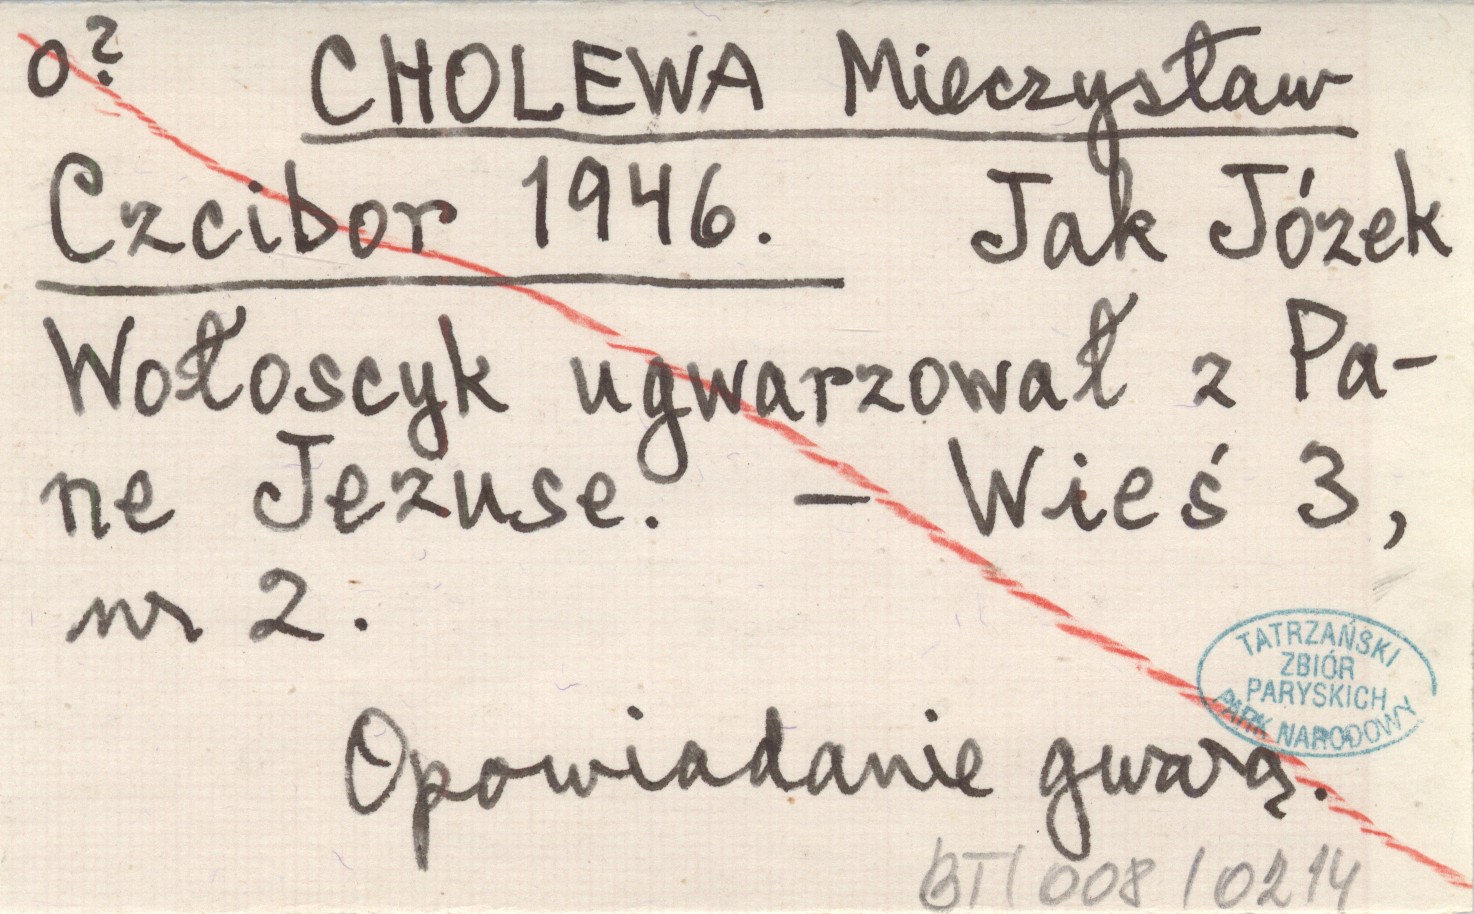 o? CHOLEWA Mieczysław
Czcibor 1946. Jak Józek
Wołoscyk ugwarzował z Pa-
ne Jezuse. – Wieś 3,
nr 2.
TATRZAŃSKI
ZBIÓR
PARYSKICH
PARK NARODOWY
Opowiadanie gwarą.
BT/008/0214